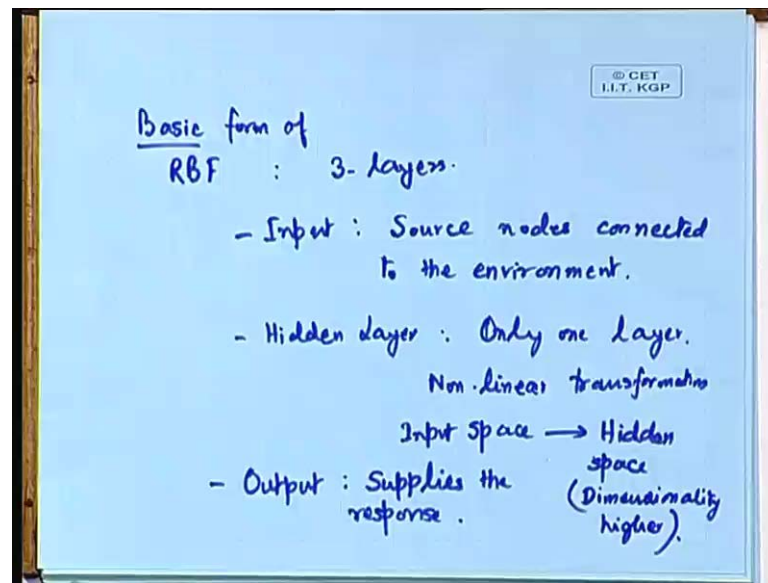 © CET
I.I.T. KGP
Basic form of
RBF : 3- layers.
- Input : Source nodes connected
to the environment.
- Hidden Layer : Only one layer.
Non-linear transformation
Input space → Hidden
space
(Dimensionality
higher).
- Output : Supplies the
response.